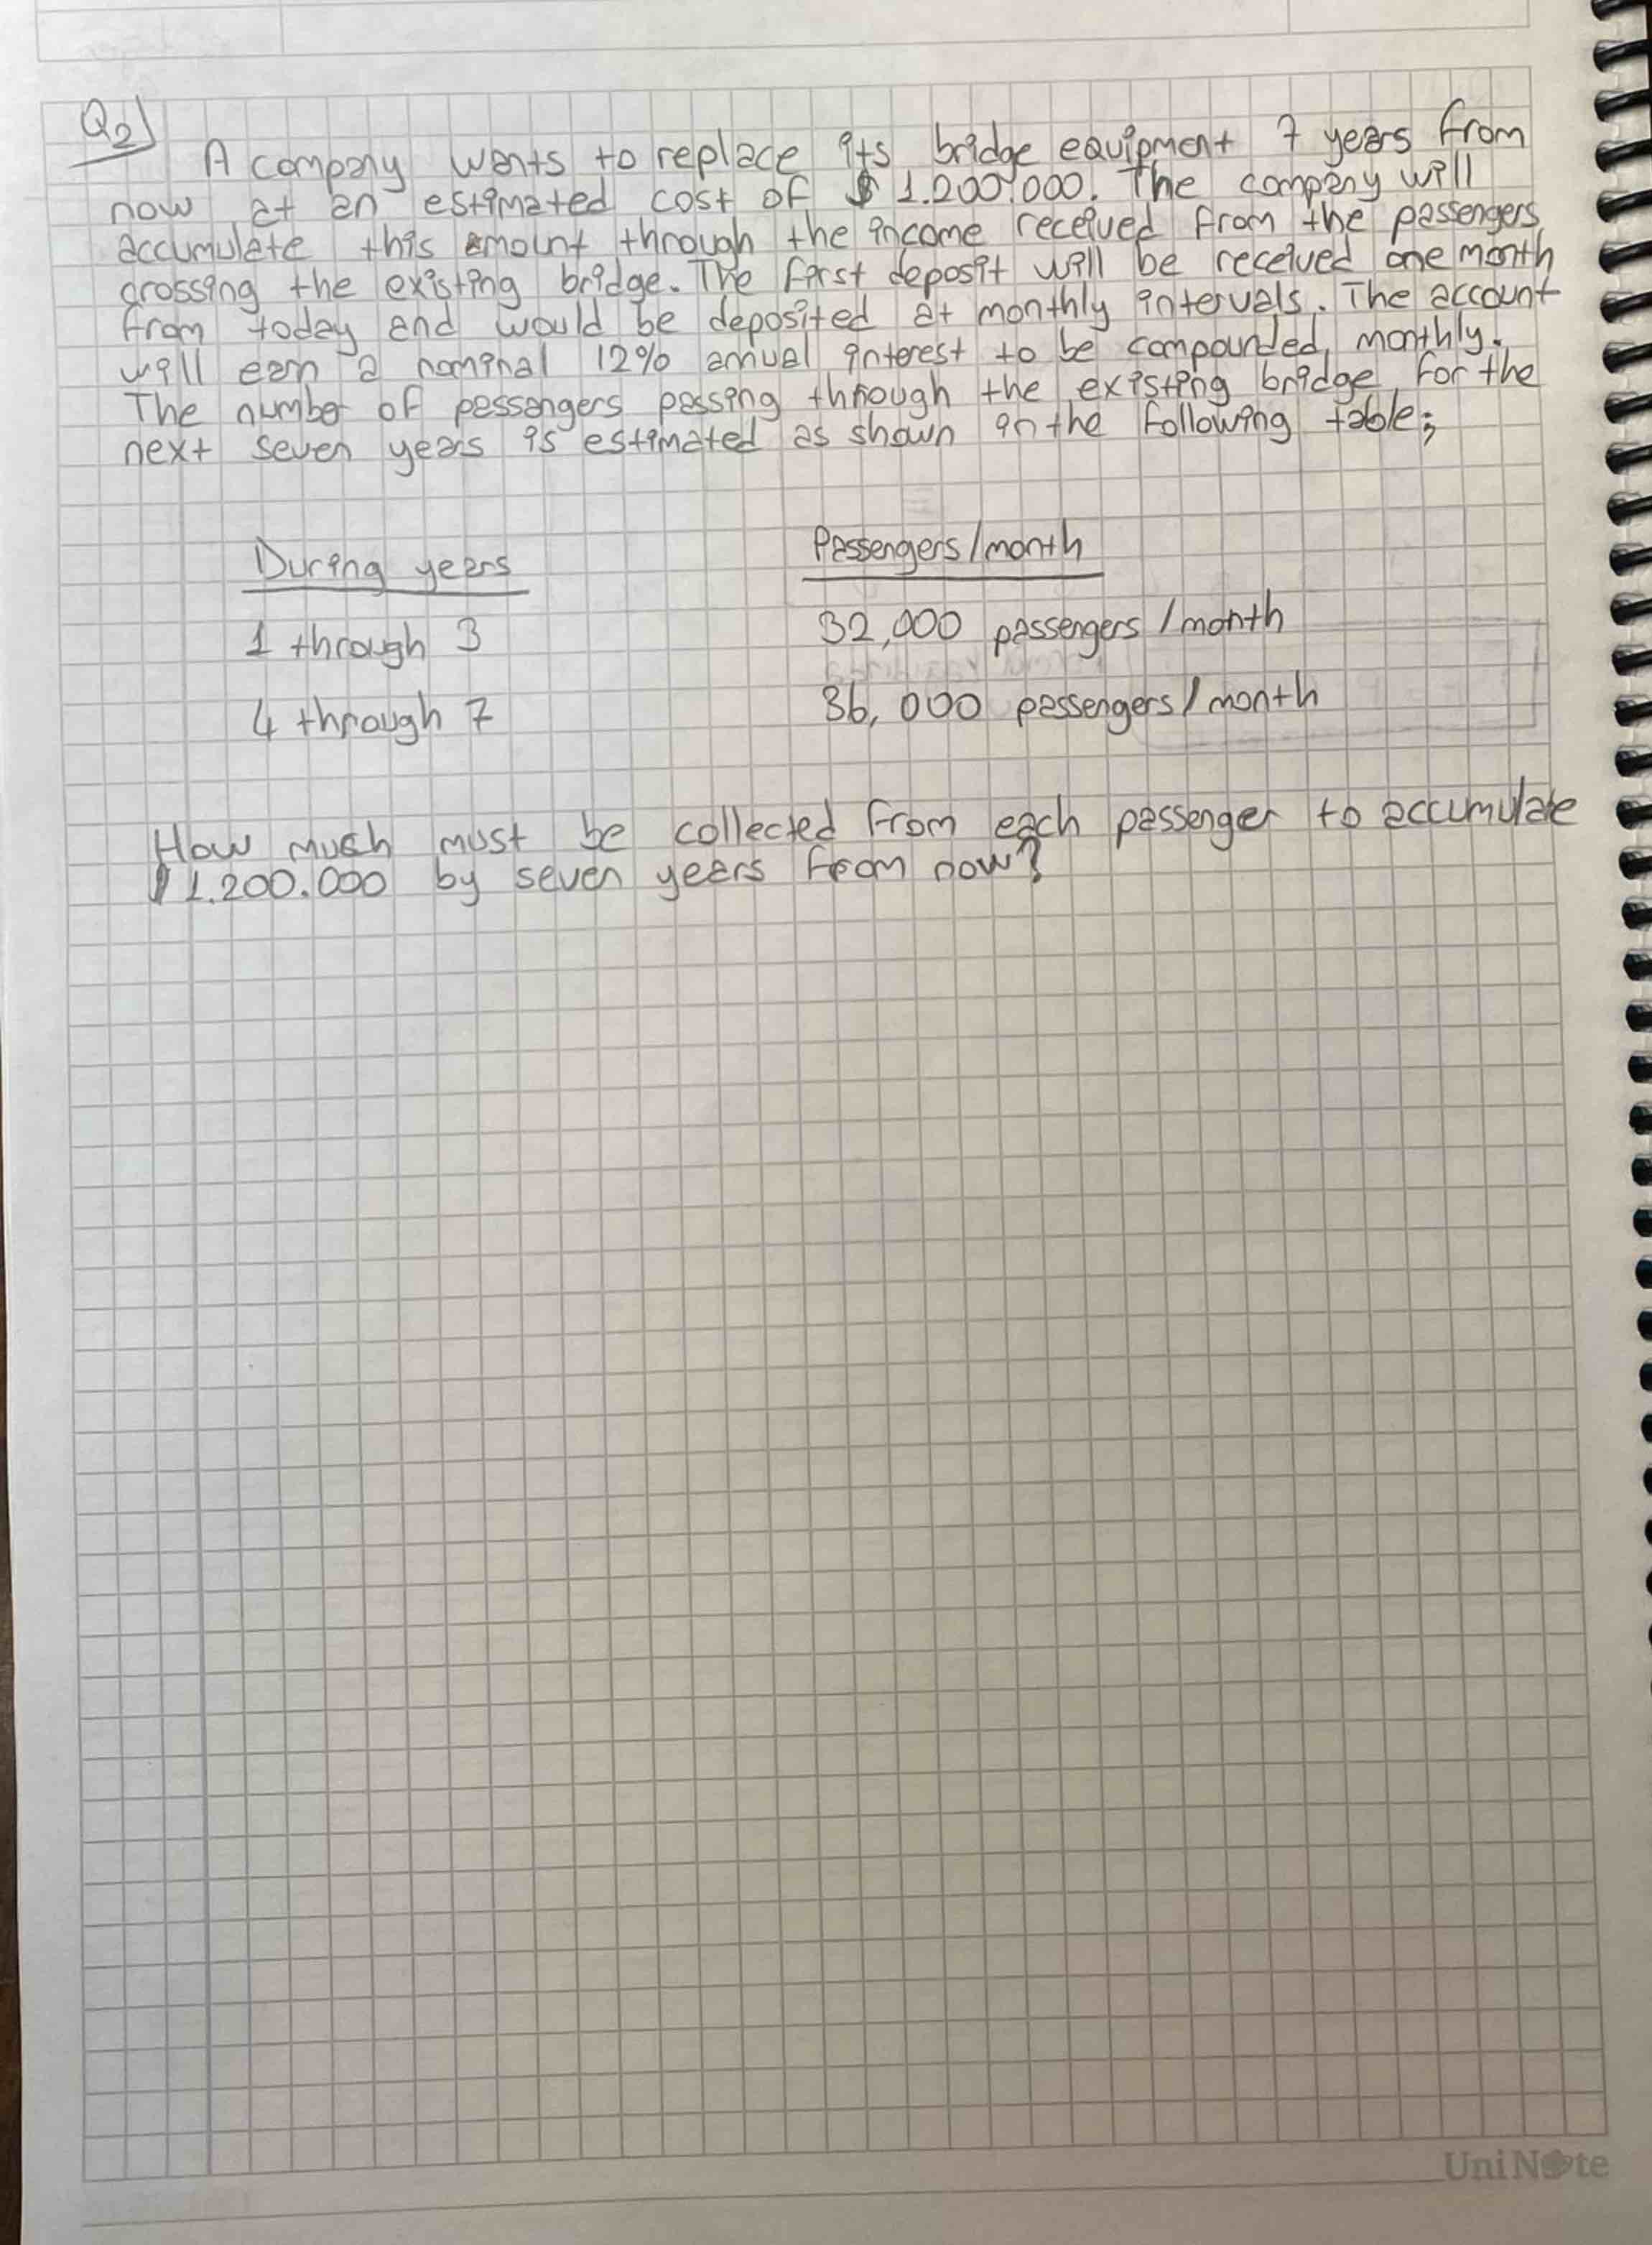 Q2)
A company wants to replace its bridge equipment 7 years from
now at an estimated cost of $ 1.200.000. The company will
accumulate this amount through the income received from the passengers
crossing the existing bridge. The first deposit will be received one month
from today and would be deposited at monthly intervals. The account
will earn a nominal 12% annual interest to be compounded monthly.
The number of passengers passing through the existing bridge for the
next seven years is estimated as shown in the following table;
During years Passengers/month
1 through 3 32,000 passengers/month
4 through 7 36,000 passengers/month
How much must be collected from each passenger to accumulate
$1.200.000 by seven years from now?
UniNote